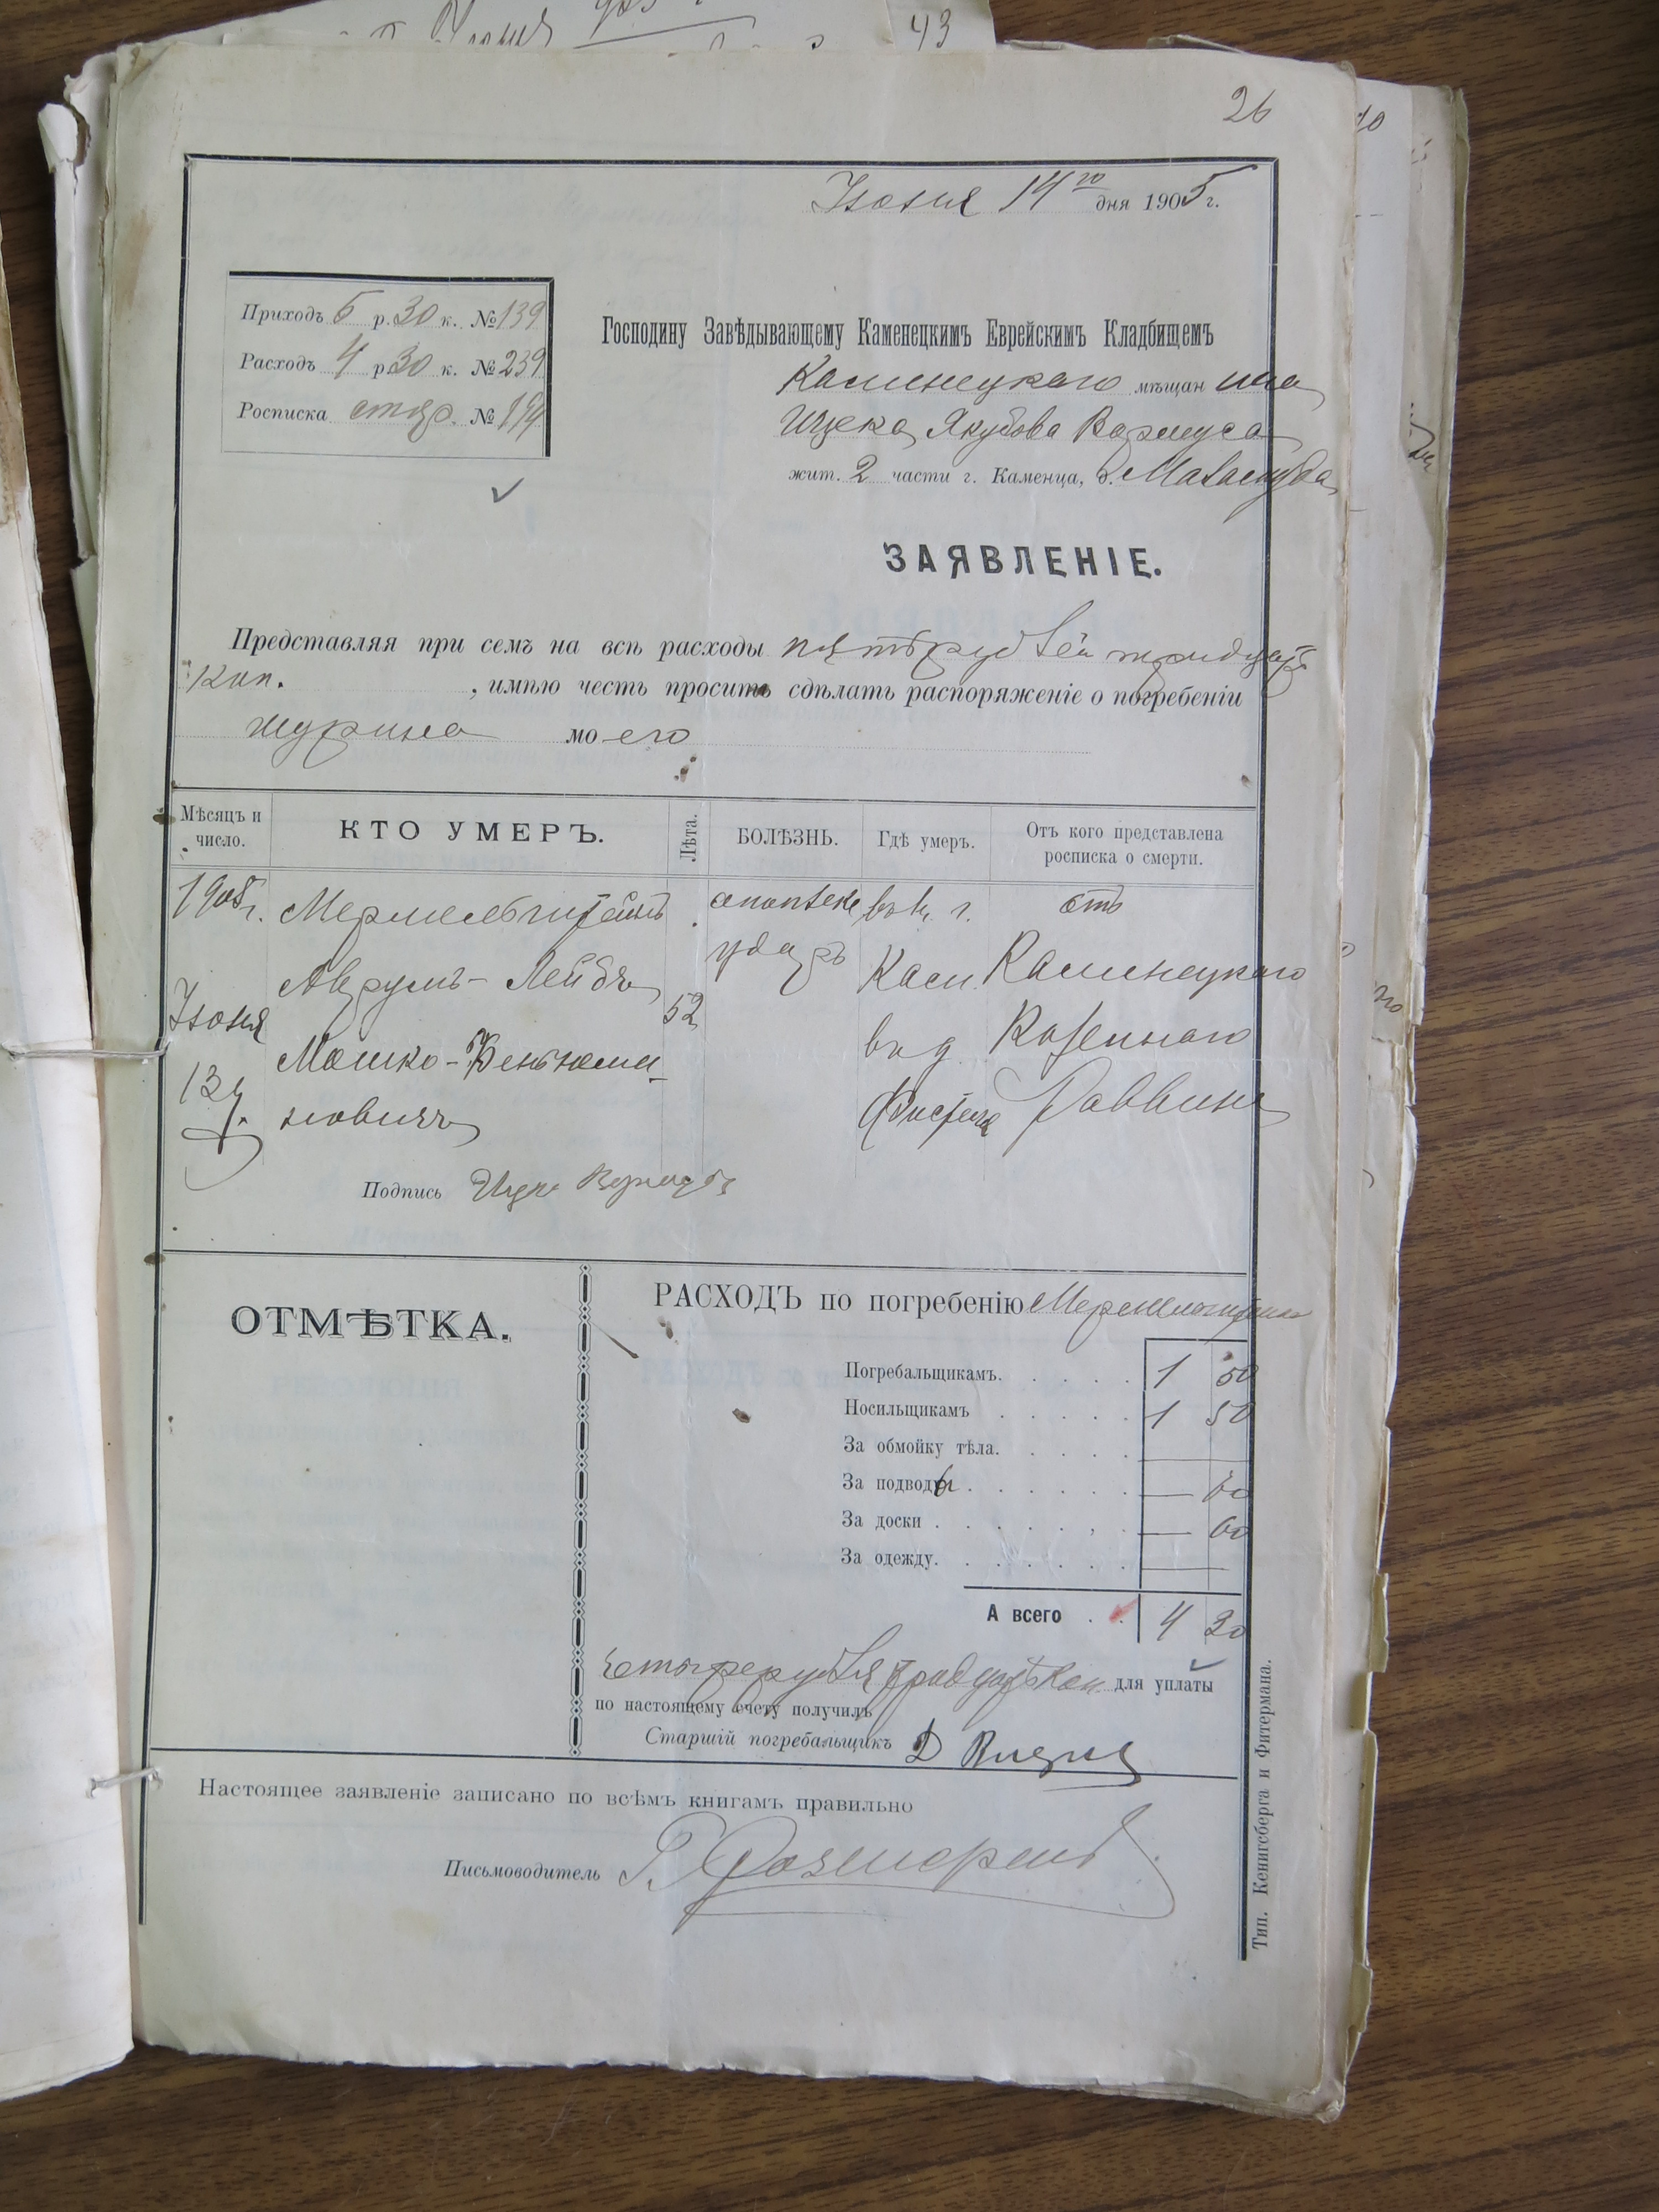 43
26
Іюня 14го дня 1905 г.
Приходъ 5 р. 30 к. № 139
Расходъ 4 р 30 к. № 239
Росписка № 194
Господину Завѣдывающему Каменецкимъ Еврейскимъ Кладбищемъ
Каменецкаго мѣщанина
Ицека Якубова Вармуса
жит. 2 части г. Каменца, д.
ЗАЯВЛЕНІЕ.
Представляя при семъ на всѣ расходы пять рублей тридцать
коп. , имѣю честь просить сдѣлать распоряженіе о погребеніи
шурина моего
Мѣсяцъ и число. КТО УМЕРЪ. Лѣта. БОЛѢЗНЬ. Гдѣ умеръ. Отъ кого представлена росписка о смерти.
1905 г. Мермельштейнъ въ г. отъ
Аврумъ-Лейбъ ударъ Кам. Каменецкаго
Іюня 52
Мошко-Беньями- Казеннаго
13 д. новичъ Раввина
Подпись Ицек Вармус
ОТМѢТКА.
РАСХОДЪ по погребенію Мермельштейна
Погребальщикамъ. 1 50
Носильщикамъ 1 50
За обмойку тѣла.
За подводы — 70
За доски — 60
За одежду. —
А всего 4 30
Четыре рубля тридцать коп. для уплаты
по настоящему счету получилъ
Старшій погребальщикъ Д
Настоящее заявленіе записано по всѣмъ книгамъ правильно
Письмоводитель
Тип. Кенигсберга и Фитермана.